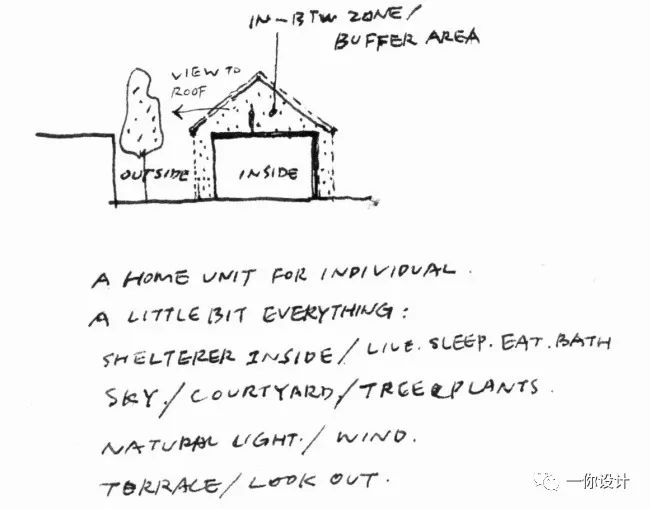 IN-BTW ZONE/
BUFFER AREA
VIEW TO
ROOF
OUTSIDE
INSIDE
A HOME UNIT FOR INDIVIDUAL.
A LITTLE BIT EVERYTHING:
SHELTERER INSIDE/LIVE.SLEEP.EAT.BATH
SKY./COURTYARD,/TREE&PLANTS.
NATURAL LIGHT./WIND.
TERRACE/LOOK OUT.
一你设计